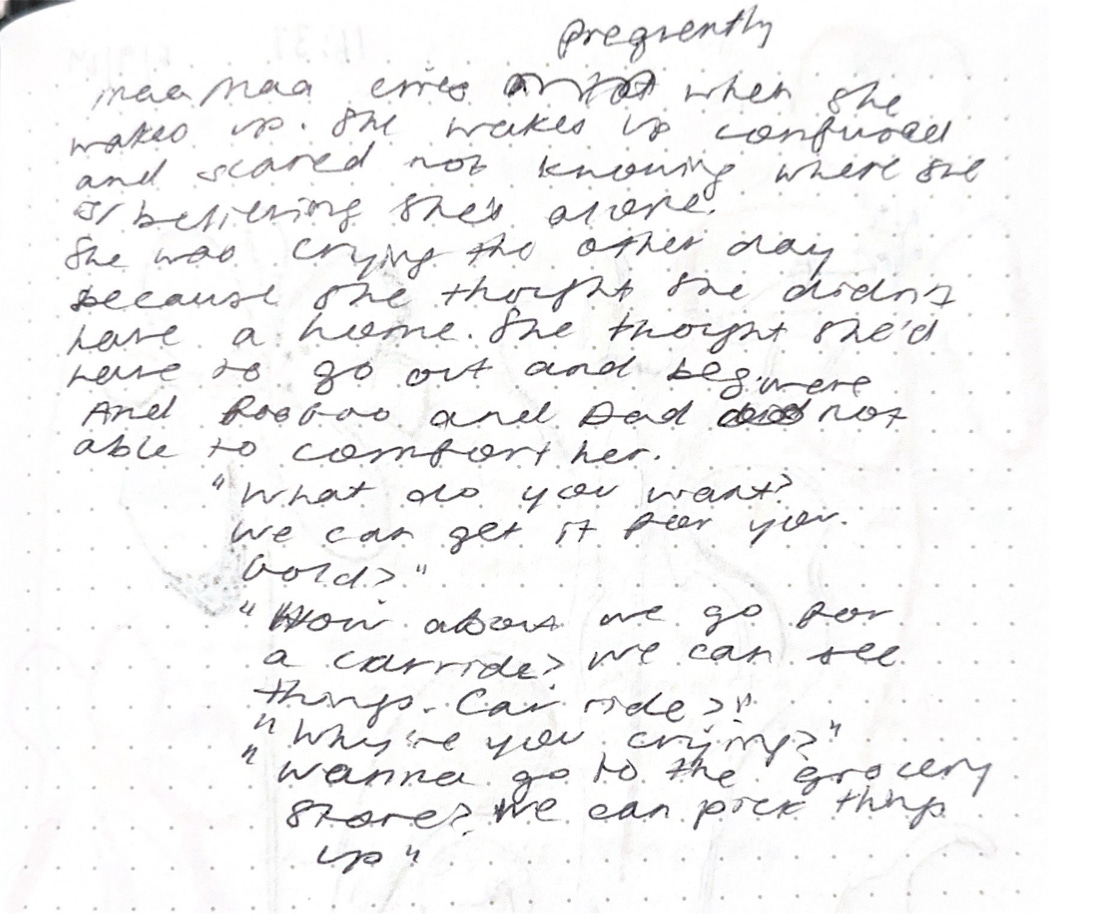 frequently
maa maa cries when she
wakes up. She wakes up confused
and scared not knowing where she
is/believing she's alone.
She was crying the other day
because she thought she didn't
have a home. She thought she'd
have to go out and beg. were
And BooBoo and Dad not
able to comfort her.
"What do you want?
We can get it for you.
Gold?"
"How about we go for
a car ride? We can see
things. Car ride?"
"Why're you crying?"
"Wanna go to the grocery
store? We can pick things
up"